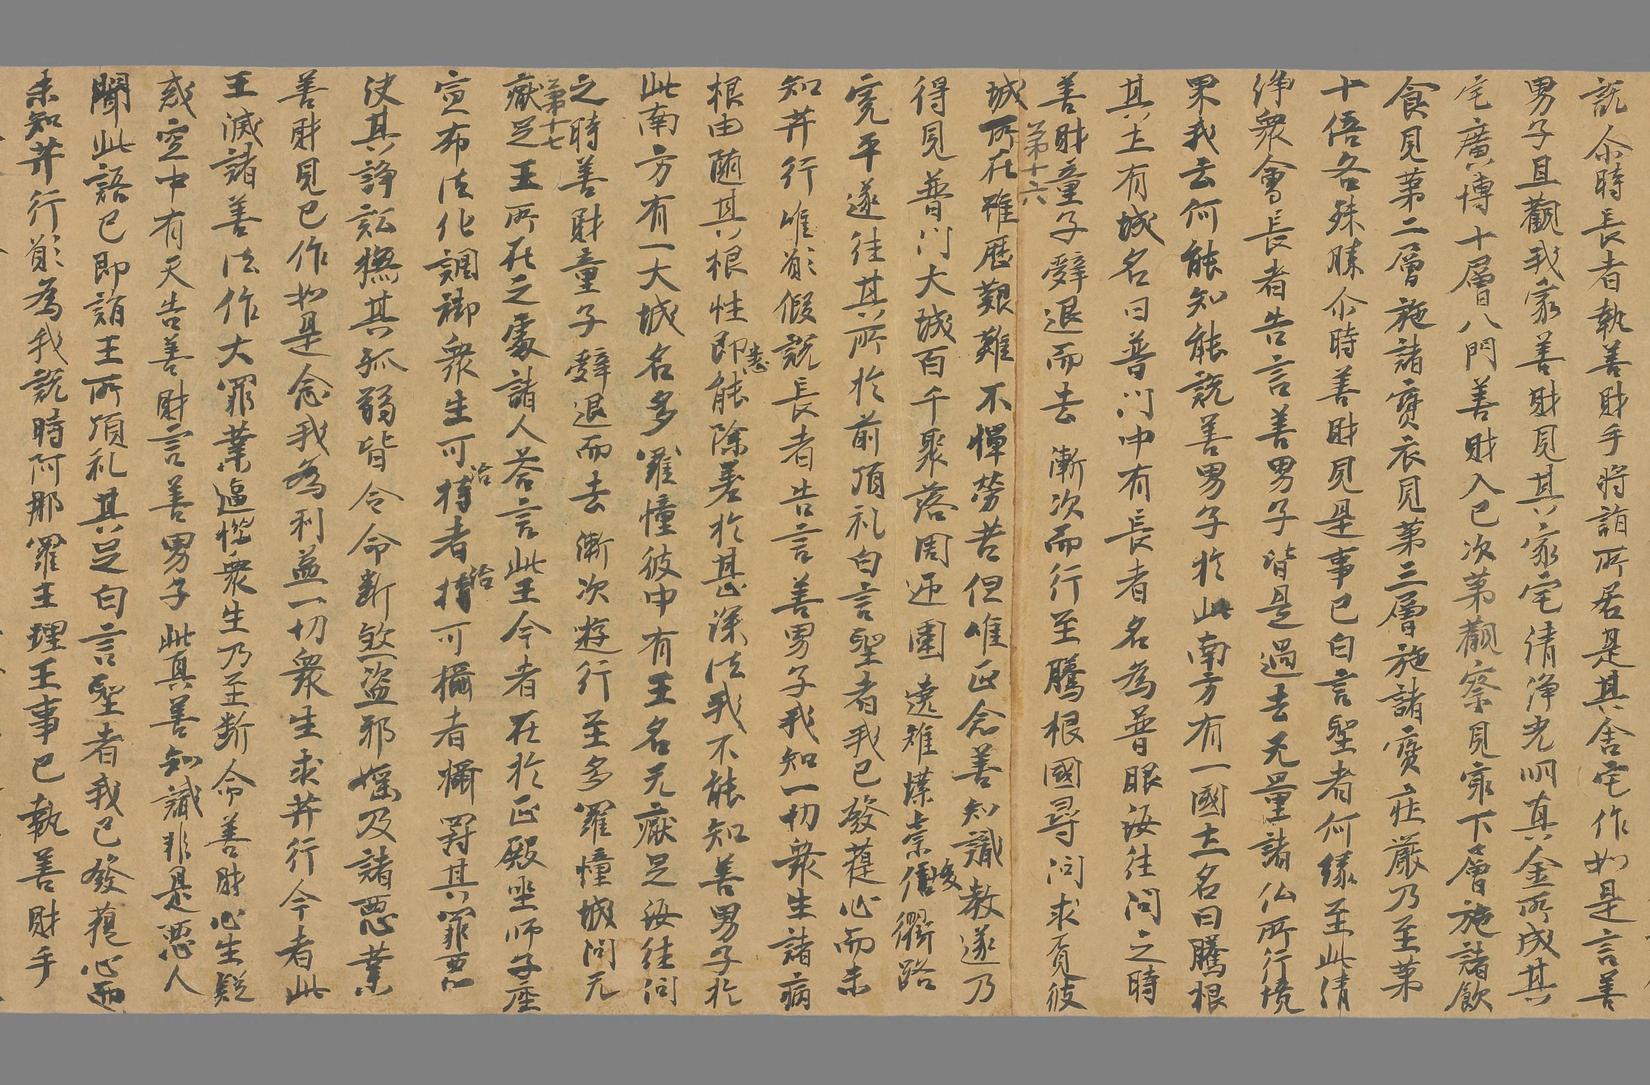 說尒時長者執善財手將詣所居是其舍宅作如是言善
男子且觀我家善財見其家宅清淨光明真金所成其
宅廣博十層八門善財入已次第觀察見冣下層施諸飲
食見第二層施諸寶衣見第三層施諸寶莊嚴乃至第
十俉各殊勝尒時善財見是事已白言聖者何緣至此清
淨衆會長者告言善男子皆是過去无量諸仏所行境
果我去何能知能說善男子於此南方有一國土名曰騰根
其土有城名曰普門中有長者名為普眼汝往問之時
善財童子辞退而去漸次而行至騰根國尋問求覓彼
第十六
城所在雖歷艱難不憚勞苦但唯正念善知識教遂乃
得見普門大城百千聚落周迊圍遶雉堞崇峻衢路
寬平遂往其所於前頂礼白言聖者我已發菩心而未
知井行唯願假說長者告言善男子我知一切衆生諸病
根由随其根性即悉能除差於甚深法我不能知善男子於
此南方有一大城名多羅憧彼中有王名无厭足汝往問
之時善財童子辞退而去漸次遊行至多羅憧城問无
第十七
厭足王所在之處諸人荅言此王今者在於正殿坐师子座
宣布法化調御衆生可治者治可攝者攝罸其罪惡
决其諍訟撫其孤弱皆令命断煞盗邪婬及諸惡業
善財見已作如是念我為利益一切衆生求井行今者此
王滅諸善法作大罪業逼惱衆生乃至断命善財心生疑
惑空中有天告善財言善男子此真善知識非是惡人
聞此語已即詣王所頂礼其足白言聖者我已發菩心而
未知井行願為我說時阿那羅王理王事已執善財手